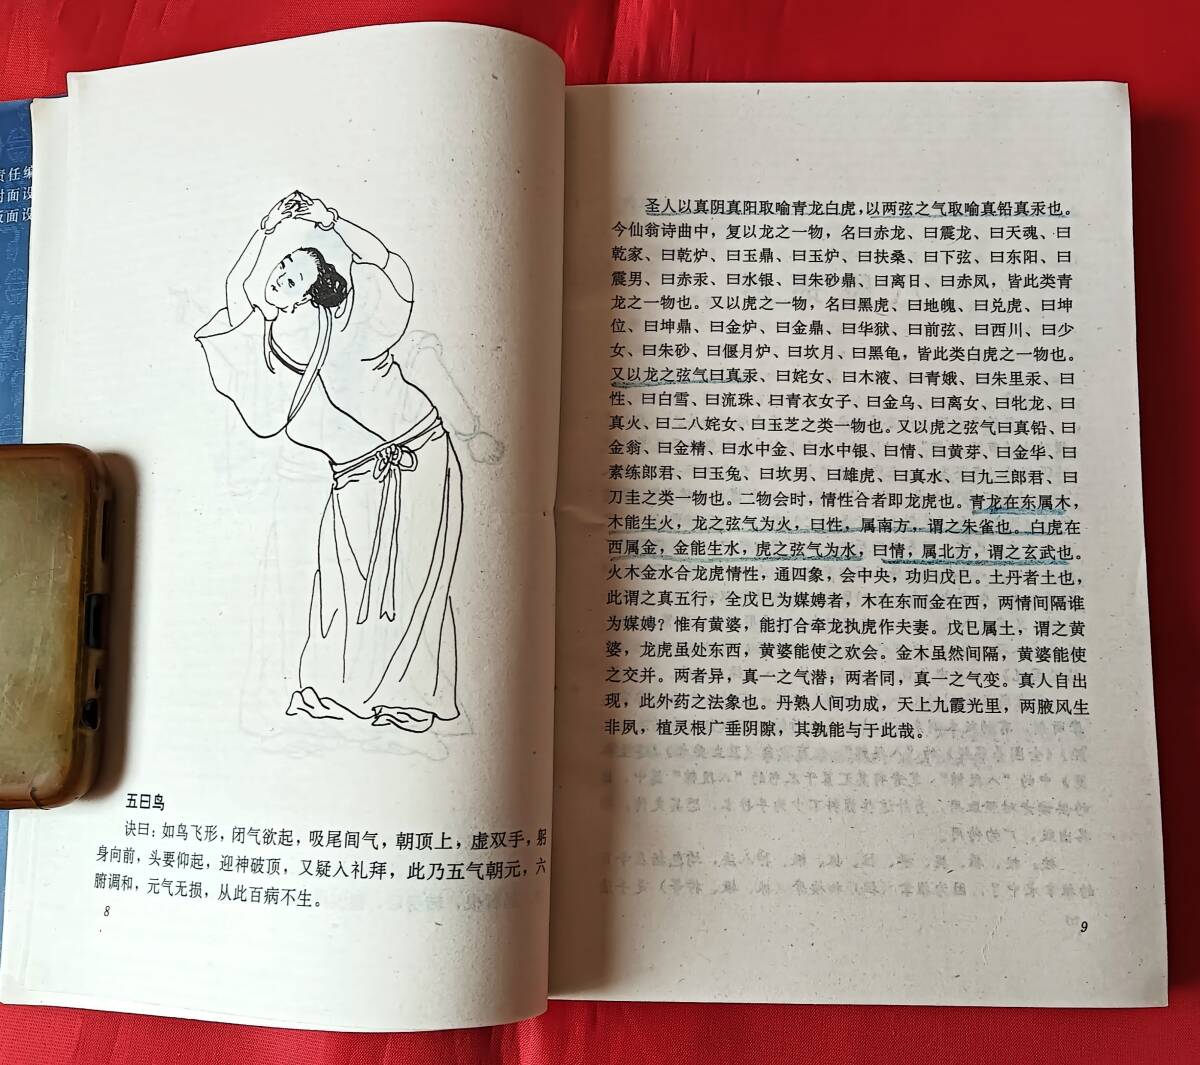 责任编
封面设
版面设
五曰鸟
诀曰：如鸟飞形，闭气欲起，吸尾闾气，朝顶上，虚双手，躬
身向前，头要仰起，迎神破顶，又疑入礼拜，此乃五气朝元，六
腑调和，元气无损，从此百病不生。
8
圣人以真阴真阳取喻青龙白虎，以两弦之气取喻真铅真汞也。
今仙翁诗曲中，复以龙之一物，名曰赤龙、曰震龙、曰天魂、曰
乾家、曰乾炉、曰玉鼎、曰玉炉、曰扶桑、曰下弦、曰东阳、曰
震男、曰赤汞、曰水银、曰朱砂鼎、曰离日、曰赤凤，皆此类青
龙之一物也。又以虎之一物，名曰黑虎、曰地魄、曰兑虎、曰坤
位、曰坤鼎、曰金炉、曰金鼎、曰华狱、曰前弦、曰西川、曰少
女、曰朱砂、曰偃月炉、曰坎月、曰黑龟，皆此类白虎之一物也。
又以龙之弦气曰真汞、曰姹女、曰木液、曰青娥、曰朱里汞、曰
性、曰白雪、曰流珠、曰青衣女子、曰金乌、曰离女、曰牝龙、曰
真火、曰二八姹女、曰玉芝之类一物也。又以虎之弦气曰真铅、曰
金翁、曰金精、曰水中金、曰水中银、曰情、曰黄芽、曰金华、曰
素练郎君、曰玉兔、曰坎男、曰雄虎、曰真水、曰九三郎君、曰
刀圭之类一物也。二物会时，情性合者即龙虎也。青龙在东属木，
木能生火，龙之弦气为火，曰性，属南方，谓之朱雀也。白虎在
西属金，金能生水，虎之弦气为水，曰情，属北方，谓之玄武也。
火木金水合龙虎情性，通四象，会中央，功归戊巳。土丹者土也，
此谓之真五行，全戊巳为媒娉者，木在东而金在西，两情间隔谁
为媒娉？惟有黄婆，能打合牵龙执虎作夫妻。戊巳属土，谓之黄
婆，龙虎虽处东西，黄婆能使之欢会。金木虽然间隔，黄婆能使
之交并。两者异，真一之气潜；两者同，真一之气变。真人自出
现，此外药之法象也。丹熟人间功成，天上九霞光里，两腋风生
非夙，植灵根广垂阴隙，其孰能与于此哉。
9